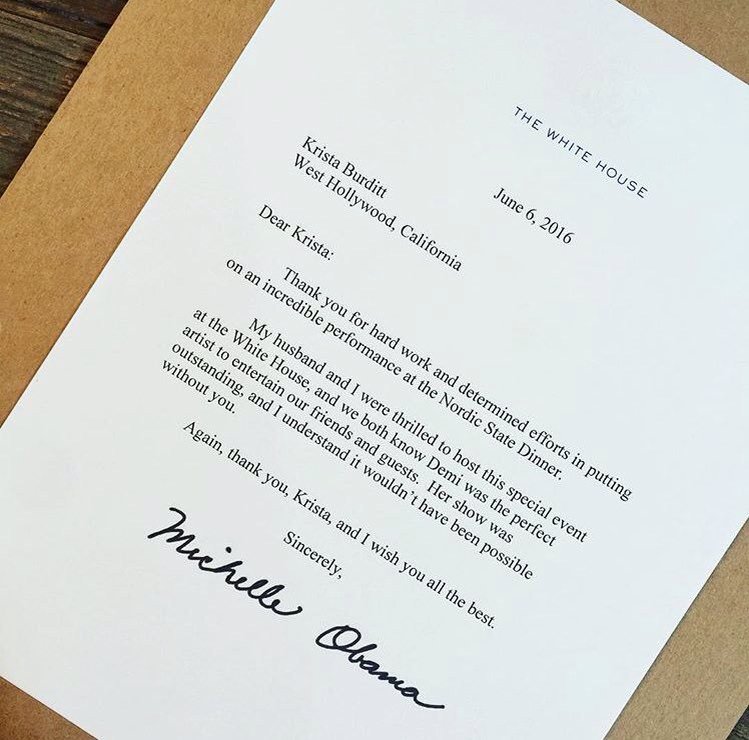 THE WHITE HOUSE
June 6, 2016
Krista Burditt
West Hollywood, California
Dear Krista:
Thank you for hard work and determined efforts in putting
on an incredible performance at the Nordic State Dinner.
My husband and I were thrilled to host this special event
at the White House, and we both know Demi was the perfect
artist to entertain our friends and guests. Her show was
outstanding, and I understand it wouldn't have been possible
without you.
Again, thank you, Krista, and I wish you all the best.
Sincerely,
Michelle Obama